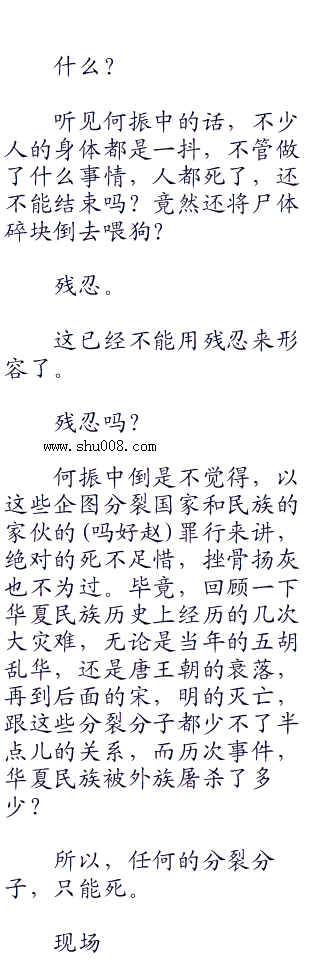 什么？
听见何振中的话，不少
人的身体都是一抖，不管做
了什么事情，人都死了，还
不能结束吗？竟然还将尸体
碎块倒去喂狗？
残忍。
这已经不能用残忍来形
容了。
残忍吗？
www.shu008.com
何振中倒是不觉得，以
这些企图分裂国家和民族的
家伙的(吗好赵)罪行来讲，
绝对的死不足惜，挫骨扬灰
也不为过。毕竟，回顾一下
华夏民族历史上经历的几次
大灾难，无论是当年的五胡
乱华，还是唐王朝的衰落，
再到后面的宋，明的灭亡，
跟这些分裂分子都少不了半
点儿的关系，而历次事件，
华夏民族被外族屠杀了多
少？
所以，任何的分裂分
子，只能死。
现场